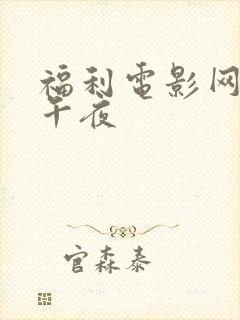 福利电影网
午夜
官森泰